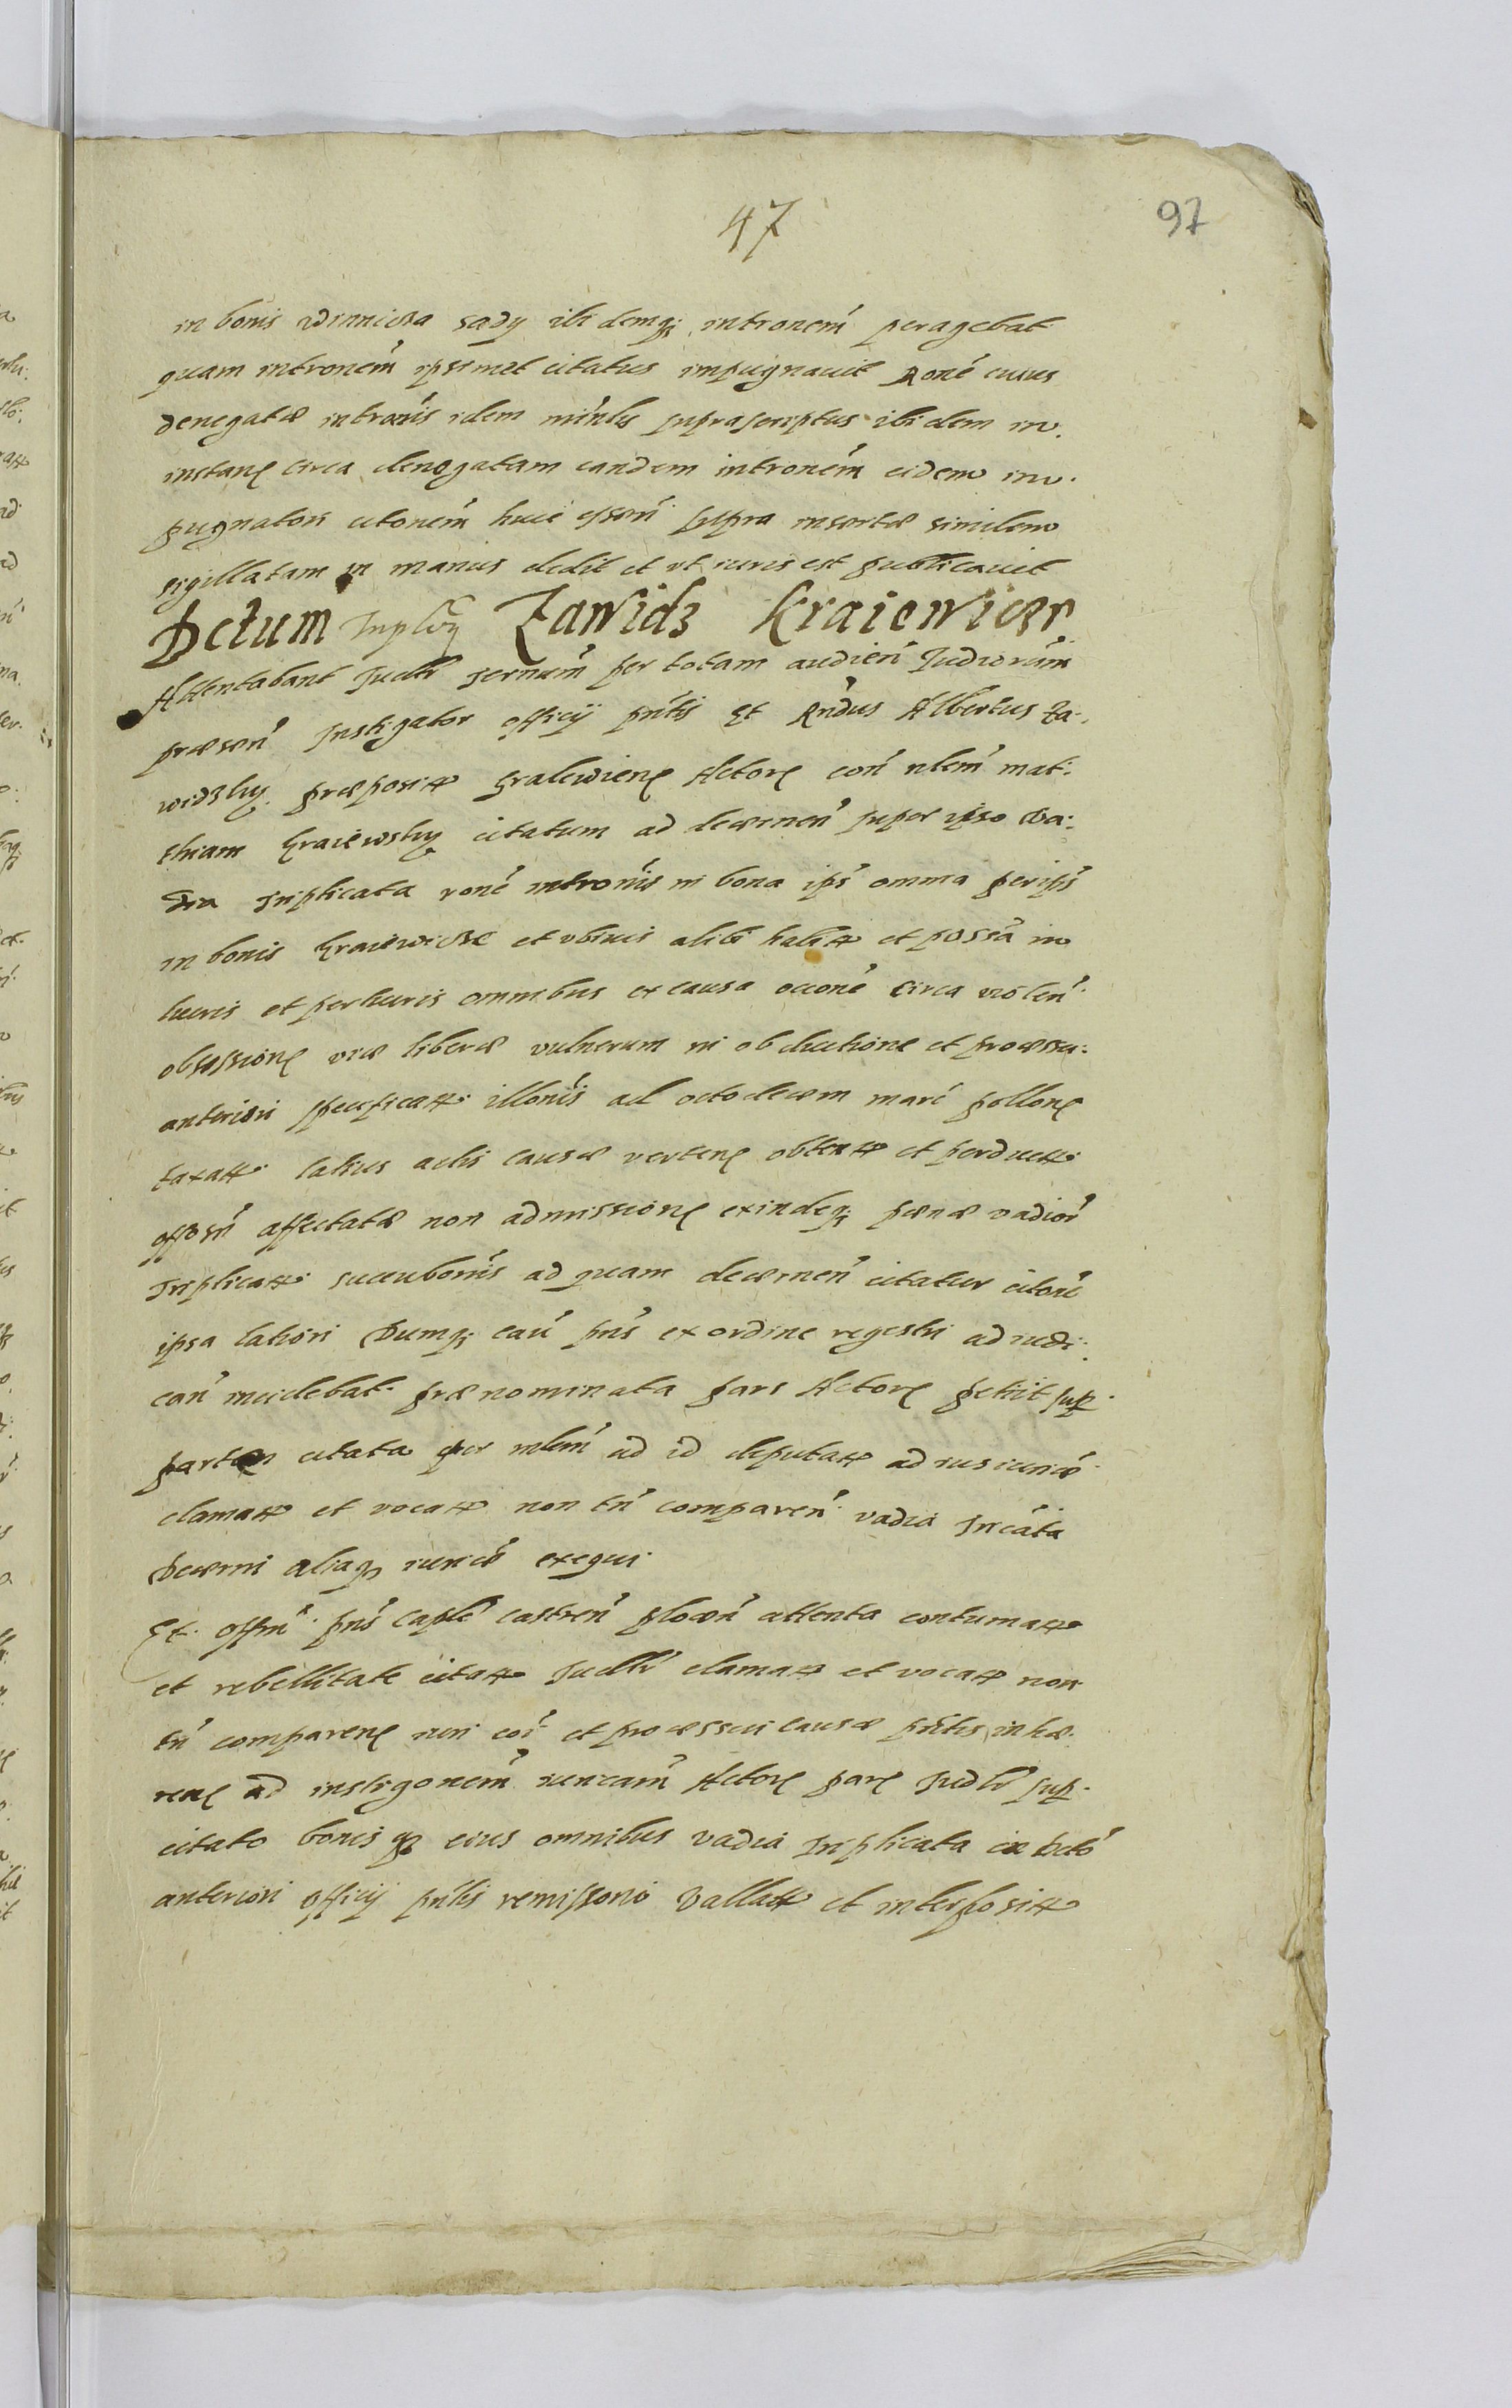 47
97
in bonis Winnicza sady ibidemq; intronem̃ peragebat
quam intronem̃ ipsimet citatus impugnavit Rone cuius
denegatæ intronis idem minrlis suprascriptus ibidem in
instanc circa denegatam eandem intronem̃ eidem im.
pugnatori citonem̃ huic essen̄ supra insertæ similem
sigillatam in manus dedit et vt iuris est publicavit
Dctum Zawidz Kraiewicze
Attentabant Judlr ternum per totam audien̄ Judiciorum
præsen̄ Instigator officij pñtis Et Rñdus Albertus Za:
widzky præposit Gralewienc Actorc con̄ nlem̃ mat:
thiam Kraiewsky citatum ad decernen̄ super ipso va:
dia triplicata rone intronis in bona ips̄ omnia per ips̄
in bonis Kraiewicze et vbivis alibi habit et possa in
lucris et perlucris omnibus ex causa occone circa violen̄
obsessionc viæ liberæ vulnerum in obductione et processu
anteriori specificat illonis ad octodecem marc pollonc
taxat latius actis causæ vertenc obtent et perduct
offosm̄ affectatæ non admissionc exindeq; pænæ vadior̄
triplicat succubonis ad quam decernen̄ citatur citone
ipsa latiori Dumq; cau̅ pns̄ ex ordine regestri ad iudi:
can̄ incidebat prænominata pars Actorc petiit sup
parten citata per mlem̃ ad id deputat ad ius iurice
clamat et vocat non tn̄ comparen̄ vadia tricata
Decerni aliaq; iurice exequi
Et offm̄ pns̄ Caple castren̄ plocen̄ attenta contumat
et rebellitate citat Judlr clamat et vocat non
tn̄ comparenc iuri coi et processui causæ pñtis inhæ.
renc ad instigonem̃ iuricam Actorc parc Judlr sup
citato bonisq; eius omnibus vadia triplicata in dcto
anteriori officij pñtis remissorio vallat et interposit